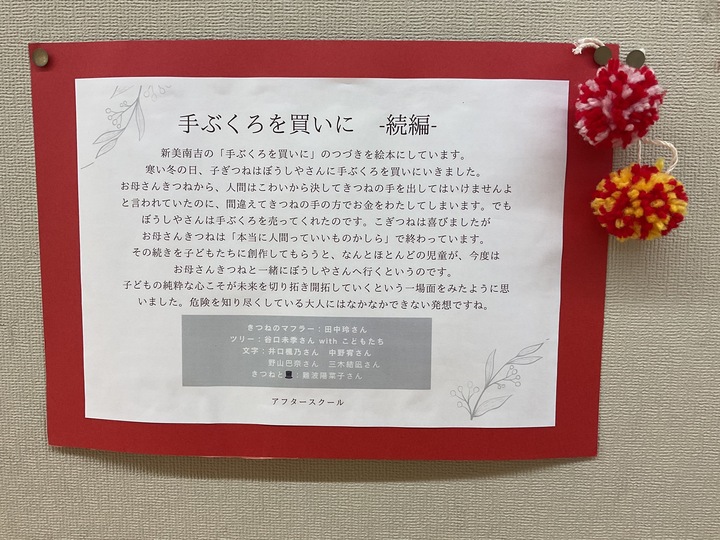 手ぶくろを買いに　-続編-
新美南吉の「手ぶくろを買いに」のつづきを絵本にしています。
寒い冬の日、子ぎつねはぼうしやさんに手ぶくろを買いにいきました。
お母さんきつねから、人間はこわいから決してきつねの手を出してはいけませんよ
と言われていたのに、間違えてきつねの手の方でお金をわたしてしまいます。でも
ぼうしやさんは手ぶくろを売ってくれたのです。こぎつねは喜びましたが
お母さんきつねは「本当に人間っていいものかしら」で終わっています。
その続きを子どもたちに創作してもらうと、なんとほとんどの児童が、今度は
お母さんきつねと一緒にぼうしやさんへ行くというのです。
子どもの純粋な心こそが未来を切り拓き開拓していくという一場面をみたように思
いました。危険を知り尽くしている大人にはなかなかできない発想ですね。
きつねのマフラー：田中玲さん
ツリー：谷口未季さん with こどもたち
文字：井口楓乃さん　中野宥さん
野山巴奈さん　三木緒凪さん
きつねと：難波陽菜子さん
アフタースクール